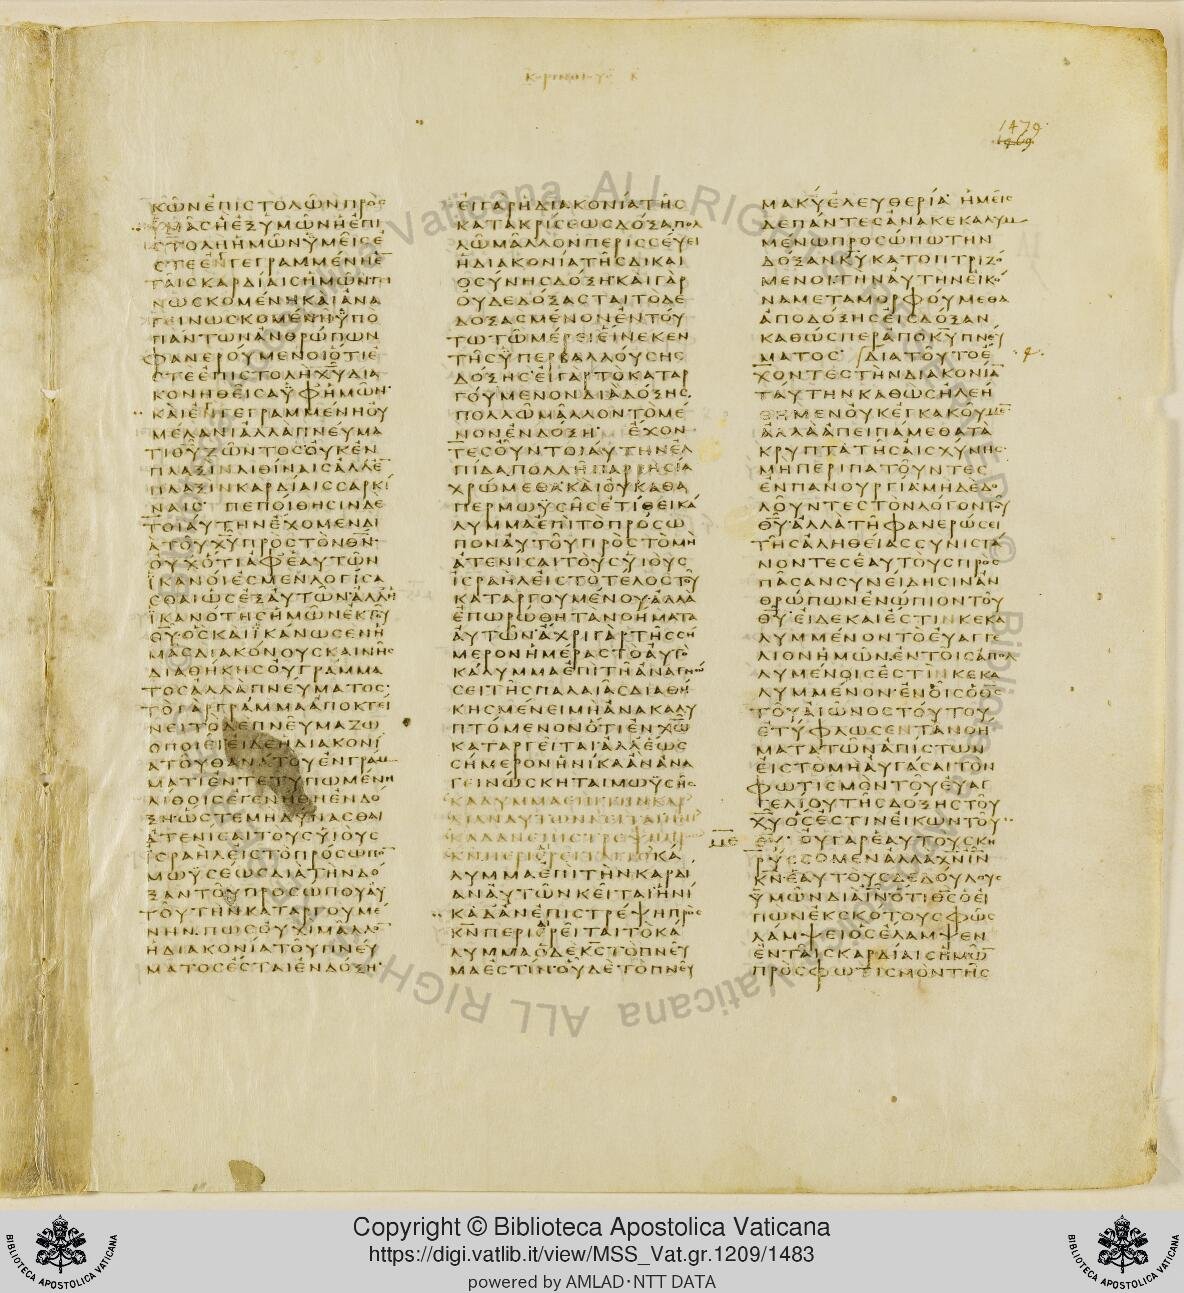 κορινθι γ β
1479
1469
ΚΩΝΕΠΙΣΤΟΛΩΝΠΡΟΣ
ΥΜΑΣΗΕΞΥΜΩΝΗΕΠΙ
ΣΤΟΛΗΗΜΩΝΥΜΕΙΣΕ
ΣΤΕΕΝΓΕΓΡΑΜΜΕΝΗΕ̅
ΤΑΙΣΚΑΡΔΙΑΙΣΗΜΩΝΓΙ
ΝΩΣΚΟΜΕΝΗΚΑΙΑΝΑ
ΓΕΙΝΩΣΚΟΜΕΝΗΫΠΟ
ΠΑΝΤΩΝΑΝΘΡΩΠΩΝ
ΦΑΝΕΡΟΥΜΕΝΟΙΟΤΙΕ
ΣΤΕΕΠΙΣΤΟΛΗΧ̅Υ̅ΔΙΑ
ΚΟΝΗΘΕΙΣΑΫΦΗΜΩΝ
ΚΑΙΕΝΓΕΓΡΑΜΜΕΝΗΟΥ
ΜΕΛΑΝΙΑΛΛΑΠΝΕΥΜΑ
ΤΙΘ̅Υ̅ΖΩΝΤΟΣΟΥΚΕΝ
ΠΛΑΞΙΝΛΙΘΙΝΑΙΣΑΛΛΕ̅
ΠΛΑΞΙΝΚΑΡΔΙΑΙΣΣΑΡΚΙ
ΝΑΙΣ ΠΕΠΟΙΘΗΣΙΝΔΕ
ΤΟΙΑΥΤΗΝΕΧΟΜΕΝΔΙ
ΑΤΟΥΧ̅Υ̅ΠΡΟΣΤΟΝΘ̅Ν̅
ΟΥΧΟΤΙΑΦΕΑΥΤΩΝ
ΪΚΑΝΟΙΕΣΜΕΝΛΟΓΙΣΑ
ΣΘΑΙΩΣΕΞΑΥΤΩΝΑΛΛΗ
ΪΚΑΝΟΤΗΣΗΜΩΝΕΚΤΟΥ
Θ̅Υ̅ΟΣΚΑΙΪΚΑΝΩΣΕΝΗ
ΜΑΣΔΙΑΚΟΝΟΥΣΚΑΙΝΗΣ
ΔΙΑΘΗΚΗΣΟΥΓΡΑΜΜΑ
ΤΟΣΑΛΛΑΠΝΕΥΜΑΤΟΣ
ΤΟΓΑΡΓΡΑΜΜΑΑΠΟΚΤΕΙ
ΝΕΙΤΟΔΕΠΝΕΥΜΑΖΩ
ΟΠΟΙΕΙΕΙΔΕΗΔΙΑΚΟΝΙ
ΑΤΟΥΘΑΝΑΤΟΥΕΝΓΡΑΜ
ΜΑΤΙΕΝΤΕΤΥΠΩΜΕΝΗ
ΛΙΘΟΙΣΕΓΕΝΗΘΗΕΝΔΟ
ΞΗΩΣΤΕΜΗΔΥΝΑΣΘΑΙ
ΑΤΕΝΙΣΑΙΤΟΥΣΥΪΟΥΣ
ΪΣΡΑΗΛΕΙΣΤΟΠΡΟΣΩΠΟ̅
ΜΩΫΣΕΩΣΔΙΑΤΗΝΔΟ
ΞΑΝΤΟΥΠΡΟΣΩΠΟΥΑΥ
ΤΟΥΤΗΝΚΑΤΑΡΓΟΥΜΕ
ΝΗΝΠΩΣΟΥΧΙΜΑΛΛΟ̅
ΗΔΙΑΚΟΝΙΑΤΟΥΠΝΕΥ
ΜΑΤΟΣΕΣΤΑΙΕΝΔΟΞΗ
ΕΙΓΑΡΗΔΙΑΚΟΝΙΑΤΗΣ
ΚΑΤΑΚΡΙΣΕΩΣΔΟΞΑΠΟΛ
ΛΩΜΑΛΛΟΝΠΕΡΙΣΣΕΥΕΙ
ΗΔΙΑΚΟΝΙΑΤΗΣΔΙΚΑΙ
ΟΣΥΝΗΣΔΟΞΗΚΑΙΓΑΡ
ΟΥΔΕΔΟΞΑΣΤΑΙΤΟΔΕ
ΔΟΞΑΣΜΕΝΟΝΕΝΤΟΥ
ΤΩΤΩΜΕΡΕΙΕΙΝΕΚΕΝ
ΤΗΣΫΠΕΡΒΑΛΛΟΥΣΗΣ
ΔΟΞΗΣΕΙΓΑΡΤΟΚΑΤΑΡ
ΓΟΥΜΕΝΟΝΔΙΑΔΟΞΗΣ
ΠΟΛΛΩΜΑΛΛΟΝΤΟΜΕ
ΝΟΝΕΝΔΟΞΗ ΕΧΟΝ
ΤΕΣΟΥΝΤΟΙΑΥΤΗΝΕΛ
ΠΙΔΑΠΟΛΛΗΠΑΡΡΗΣΙΑ
ΧΡΩΜΕΘΑΚΑΙΟΥΚΑΘΑ
ΠΕΡΜΩΫΣΗΣΕΤΙΘΕΙΚΑ
ΛΥΜΜΑΕΠΙΤΟΠΡΟΣΩ
ΠΟΝΑΥΤΟΥΠΡΟΣΤΟΜΗ
ΑΤΕΝΙΣΑΙΤΟΥΣΥΪΟΥΣ
ΪΣΡΑΗΛΕΙΣΤΟΤΕΛΟΣΤΟΥ
ΚΑΤΑΡΓΟΥΜΕΝΟΥΑΛΛΑ
ΕΠΩΡΩΘΗΤΑΝΟΗΜΑΤΑ
ΑΥΤΩΝΑΧΡΙΓΑΡΤΗΣΣΗ
ΜΕΡΟΝΗΜΕΡΑΣΤΟΑΥΤΟ
ΚΑΛΥΜΜΑΕΠΙΤΗΑΝΑΓΝΩ
ΣΕΙΤΗΣΠΑΛΑΙΑΣΔΙΑΘΗ
ΚΗΣΜΕΝΕΙΜΗΑΝΑΚΑΛΥ
ΠΤΟΜΕΝΟΝΟΤΙΕΝΧ̅Ω̅
ΚΑΤΑΡΓΕΙΤΑΙΑΛΛΕΩΣ
ΣΗΜΕΡΟΝΗΝΙΚΑΑΝΑΝΑ
ΓΕΙΝΩΣΚΗΤΑΙΜΩΫΣΗΣ
ΚΑΛΥΜΜΑΕΠΙΤΗΝΚΑΡ
ΔΙΑΝΑΥΤΩΝΚΕΙΤΑΙΗΝΙ
ΚΑΔΑΝΕΠΙΣΤΡΕΨΗΠΡΟΣ
Κ̅Ν̅ΠΕΡΙΕΡΕΙΤΑΙΤΟΚΑ
ΛΥΜΜΑΕΠΙΤΗΝΚΑΡΔΙ
ΑΝΑΥΤΩΝΚΕΙΤΑΙΗΝΙ
ΚΑΔΑΝΕΠΙΣΤΡΕΨΗΠΡΟΣ
Κ̅Ν̅ΠΕΡΙΕΡΕΙΤΑΙΤΟΚΑ
ΛΥΜΜΑΟΔΕΚ̅Σ̅ΤΟΠΝΕΥ
ΜΑΕΣΤΙΝΟΥΔΕΤΟΠΝΕΥ
ΜΑΚ̅Υ̅ΕΛΕΥΘΕΡΙΑ ΗΜΕΙΣ
ΔΕΠΑΝΤΕΣΑΝΑΚΕΚΑΛΥΜ
ΜΕΝΩΠΡΟΣΩΠΩΤΗΝ
ΔΟΞΑΝΚ̅Υ̅ΚΑΤΟΠΤΡΙΖΟ
ΜΕΝΟΙΤΗΝΑΥΤΗΝΕΙΚΟ
ΝΑΜΕΤΑΜΟΡΦΟΥΜΕΘΑ
ΑΠΟΔΟΞΗΣΕΙΣΔΟΞΑΝ
ΚΑΘΩΣΠΕΡΑΠΟΚ̅Υ̅ΠΝΕΥ
ΜΑΤΟΣ ΔΙΑΤΟΥΤΟΕ
ΧΟΝΤΕΣΤΗΝΔΙΑΚΟΝΙΑ̅
ΤΑΥΤΗΝΚΑΘΩΣΗΛΕΗ
ΘΗΜΕΝΟΥΚΕΓΚΑΚΟΥΜΕ̅
ΑΛΛΑΑΠΕΙΠΑΜΕΘΑΤΑ
ΚΡΥΠΤΑΤΗΣΑΙΣΧΥΝΗΣ
ΜΗΠΕΡΙΠΑΤΟΥΝΤΕΣ
ΕΝΠΑΝΟΥΡΓΙΑΜΗΔΕΔΟ
ΛΟΥΝΤΕΣΤΟΝΛΟΓΟΝΤΟΥ
Θ̅Υ̅ΑΛΛΑΤΗΦΑΝΕΡΩΣΕΙ
ΤΗΣΑΛΗΘΕΙΑΣΣΥΝΙΣΤΑ
ΝΟΝΤΕΣΕΑΥΤΟΥΣΠΡΟΣ
ΠΑΣΑΝΣΥΝΕΙΔΗΣΙΝΑΝ
ΘΡΩΠΩΝΕΝΩΠΙΟΝΤΟΥ
Θ̅Υ̅ΕΙΔΕΚΑΙΕΣΤΙΝΚΕΚΑ
ΛΥΜΜΕΝΟΝΤΟΕΥΑΓΓΕ
ΛΙΟΝΗΜΩΝΕΝΤΟΙΣΑΠΟΛ
ΛΥΜΕΝΟΙΣΕΣΤΙΝΚΕΚΑ
ΛΥΜΜΕΝΟΝΕΝΟΙΣΟΘ̅Σ̅
ΤΟΥΑΙΩΝΟΣΤΟΥΤΟΥ
ΕΤΥΦΛΩΣΕΝΤΑΝΟΗ
ΜΑΤΑΤΩΝΑΠΙΣΤΩΝ
ΕΙΣΤΟΜΗΑΥΓΑΣΑΙΤΟΝ
ΦΩΤΙΣΜΟΝΤΟΥΕΥΑΓ
ΓΕΛΙΟΥΤΗΣΔΟΞΗΣΤΟΥ
Χ̅Υ̅ΟΣΕΣΤΙΝΕΙΚΩΝΤΟΥ
Θ̅Υ̅ ΟΥΓΑΡΕΑΥΤΟΥΣΚΗ
ΡΥΣΣΟΜΕΝΑΛΛΑΧ̅Ν̅Ι̅Ν̅
Κ̅Ν̅ΕΑΥΤΟΥΣΔΕΔΟΥΛΟΥΣ
ΫΜΩΝΔΙΑΙ̅Ν̅ΟΤΙΘ̅Σ̅ΟΕΙ
ΠΩΝΕΚΣΚΟΤΟΥΣΦΩΣ
ΛΑΜΨΕΙΟΣΕΛΑΜΨΕΝ
ΕΝΤΑΙΣΚΑΡΔΙΑΙΣΗΜΩ̅
ΠΡΟΣΦΩΤΙΣΜΟΝΤΗΣ
Copyright © Biblioteca Apostolica Vaticana
https://digi.vatlib.it/view/MSS_Vat.gr.1209/1483
powered by AMLAD·NTT DATA
BIBLIOTECA APOSTOLICA VATICANA
BIBLIOTECA APOSTOLICA VATICANA